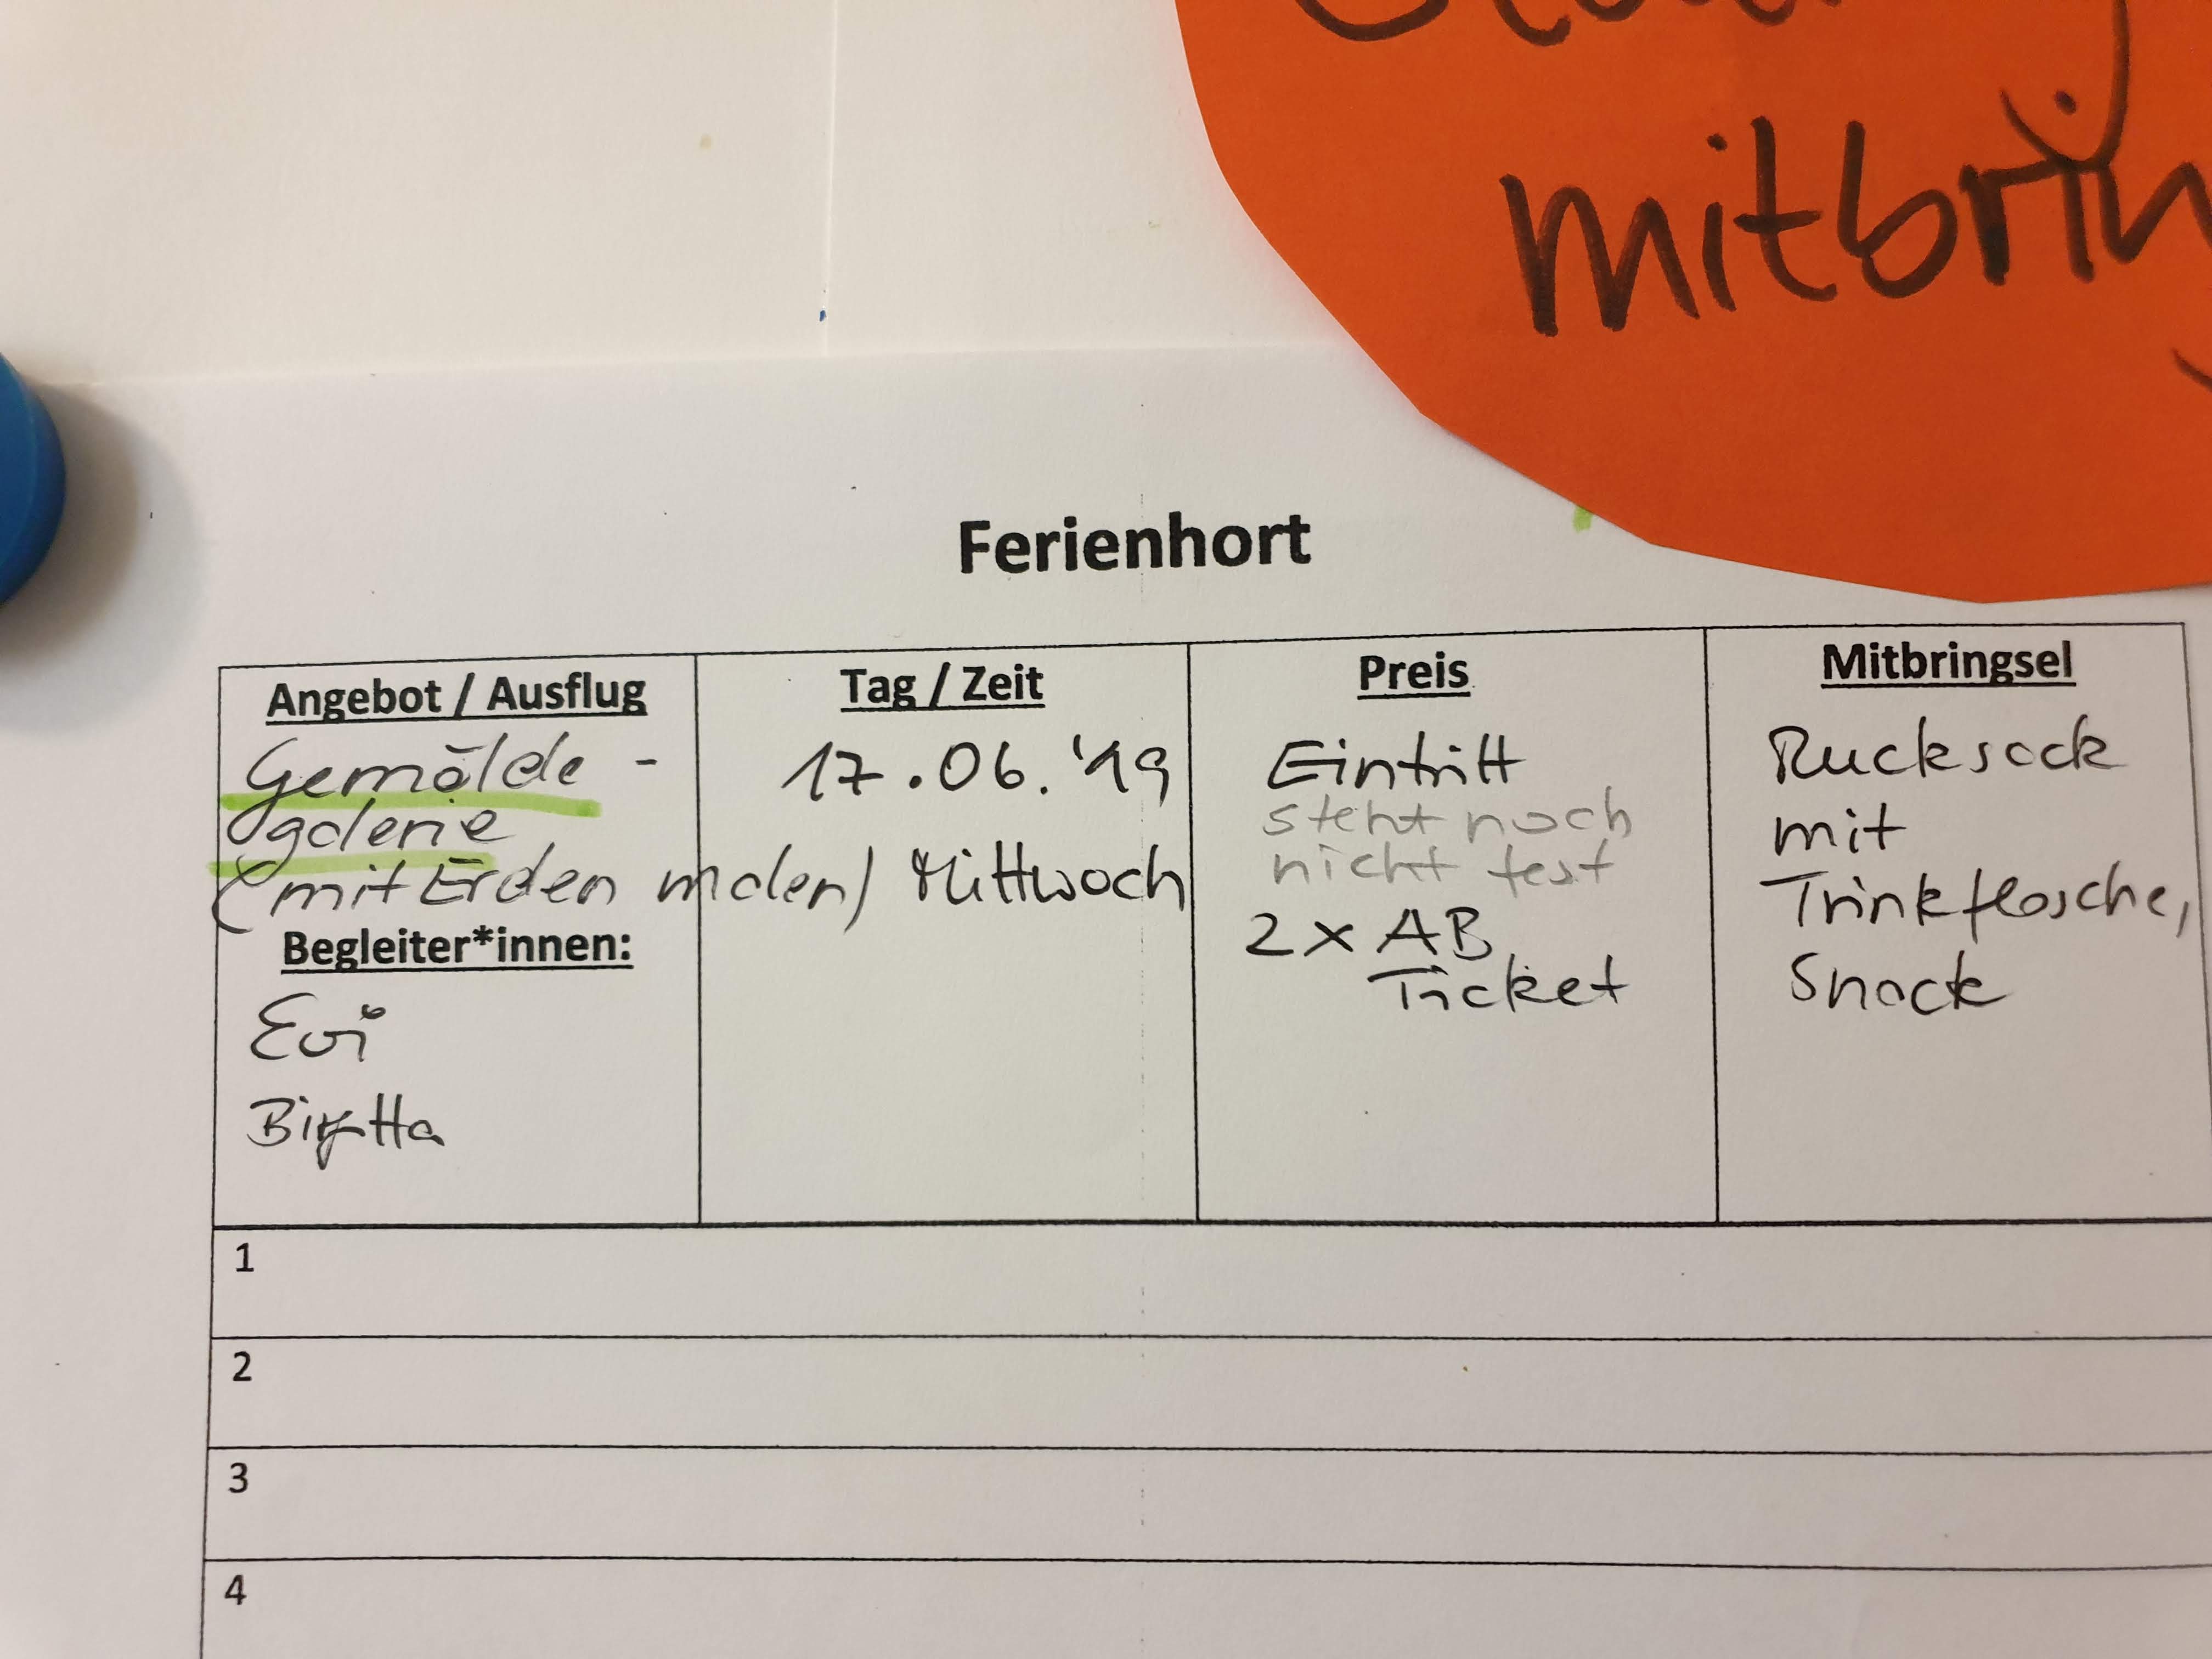 mitbrin
Ferienhort
Angebot / Ausflug
Gemälde -
galerie
(mit Erden malen)
Begleiter*innen:
Evi
Birgitta
Tag / Zeit
17.06.'19
Mittwoch
Preis
Eintritt
steht noch
nicht fest
2x AB
Ticket
Mitbringsel
Rucksack
mit
Trinkflasche,
Snack
1
2
3
4